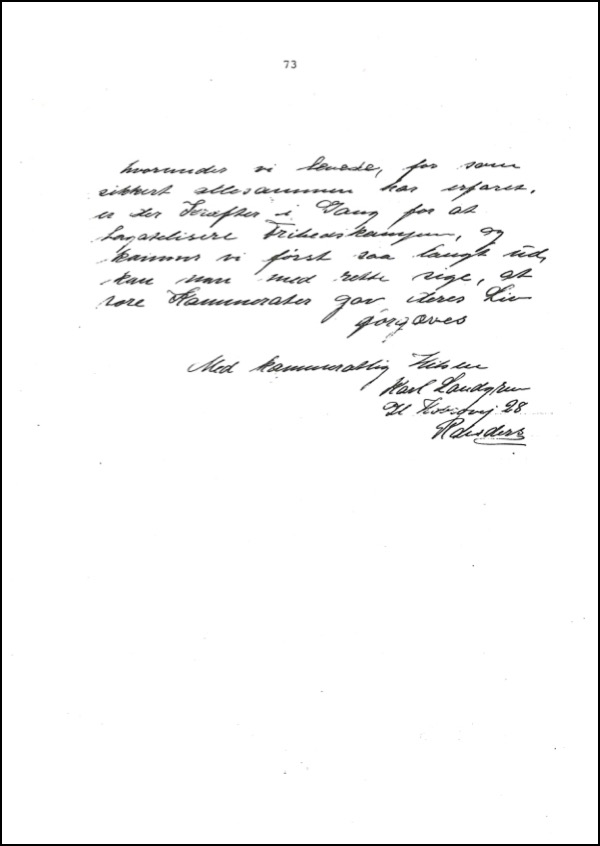 73
hvorunder vi levede, for som
sikkert allesammen har erfaret,
er der Kræfter i Gang for at
bagatelisere Frihedskampen, og
kommer vi først saa langt ud,
kan man med rette sige, at
vore Kammerater gav deres Liv
forgæves
Med kammeratlig Hilsen
Karl Lundgren
28
Randers